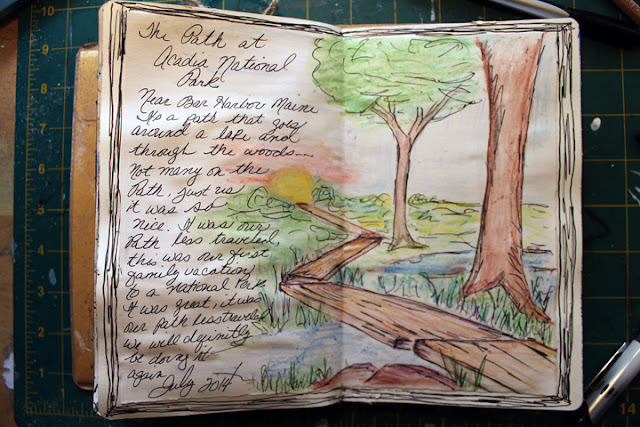 The Path at
Acadia National
Park
Near Bar Harbor Maine
It's a path that goes
around a lake and
through the woods—
Not many on the
Path, just us
it was so
nice. It was our
Path less traveled,
this was our first
family vacation
to a National Park
It was great, it was
our path less traveled
we will definitly
be doing it
again
July 2014
14